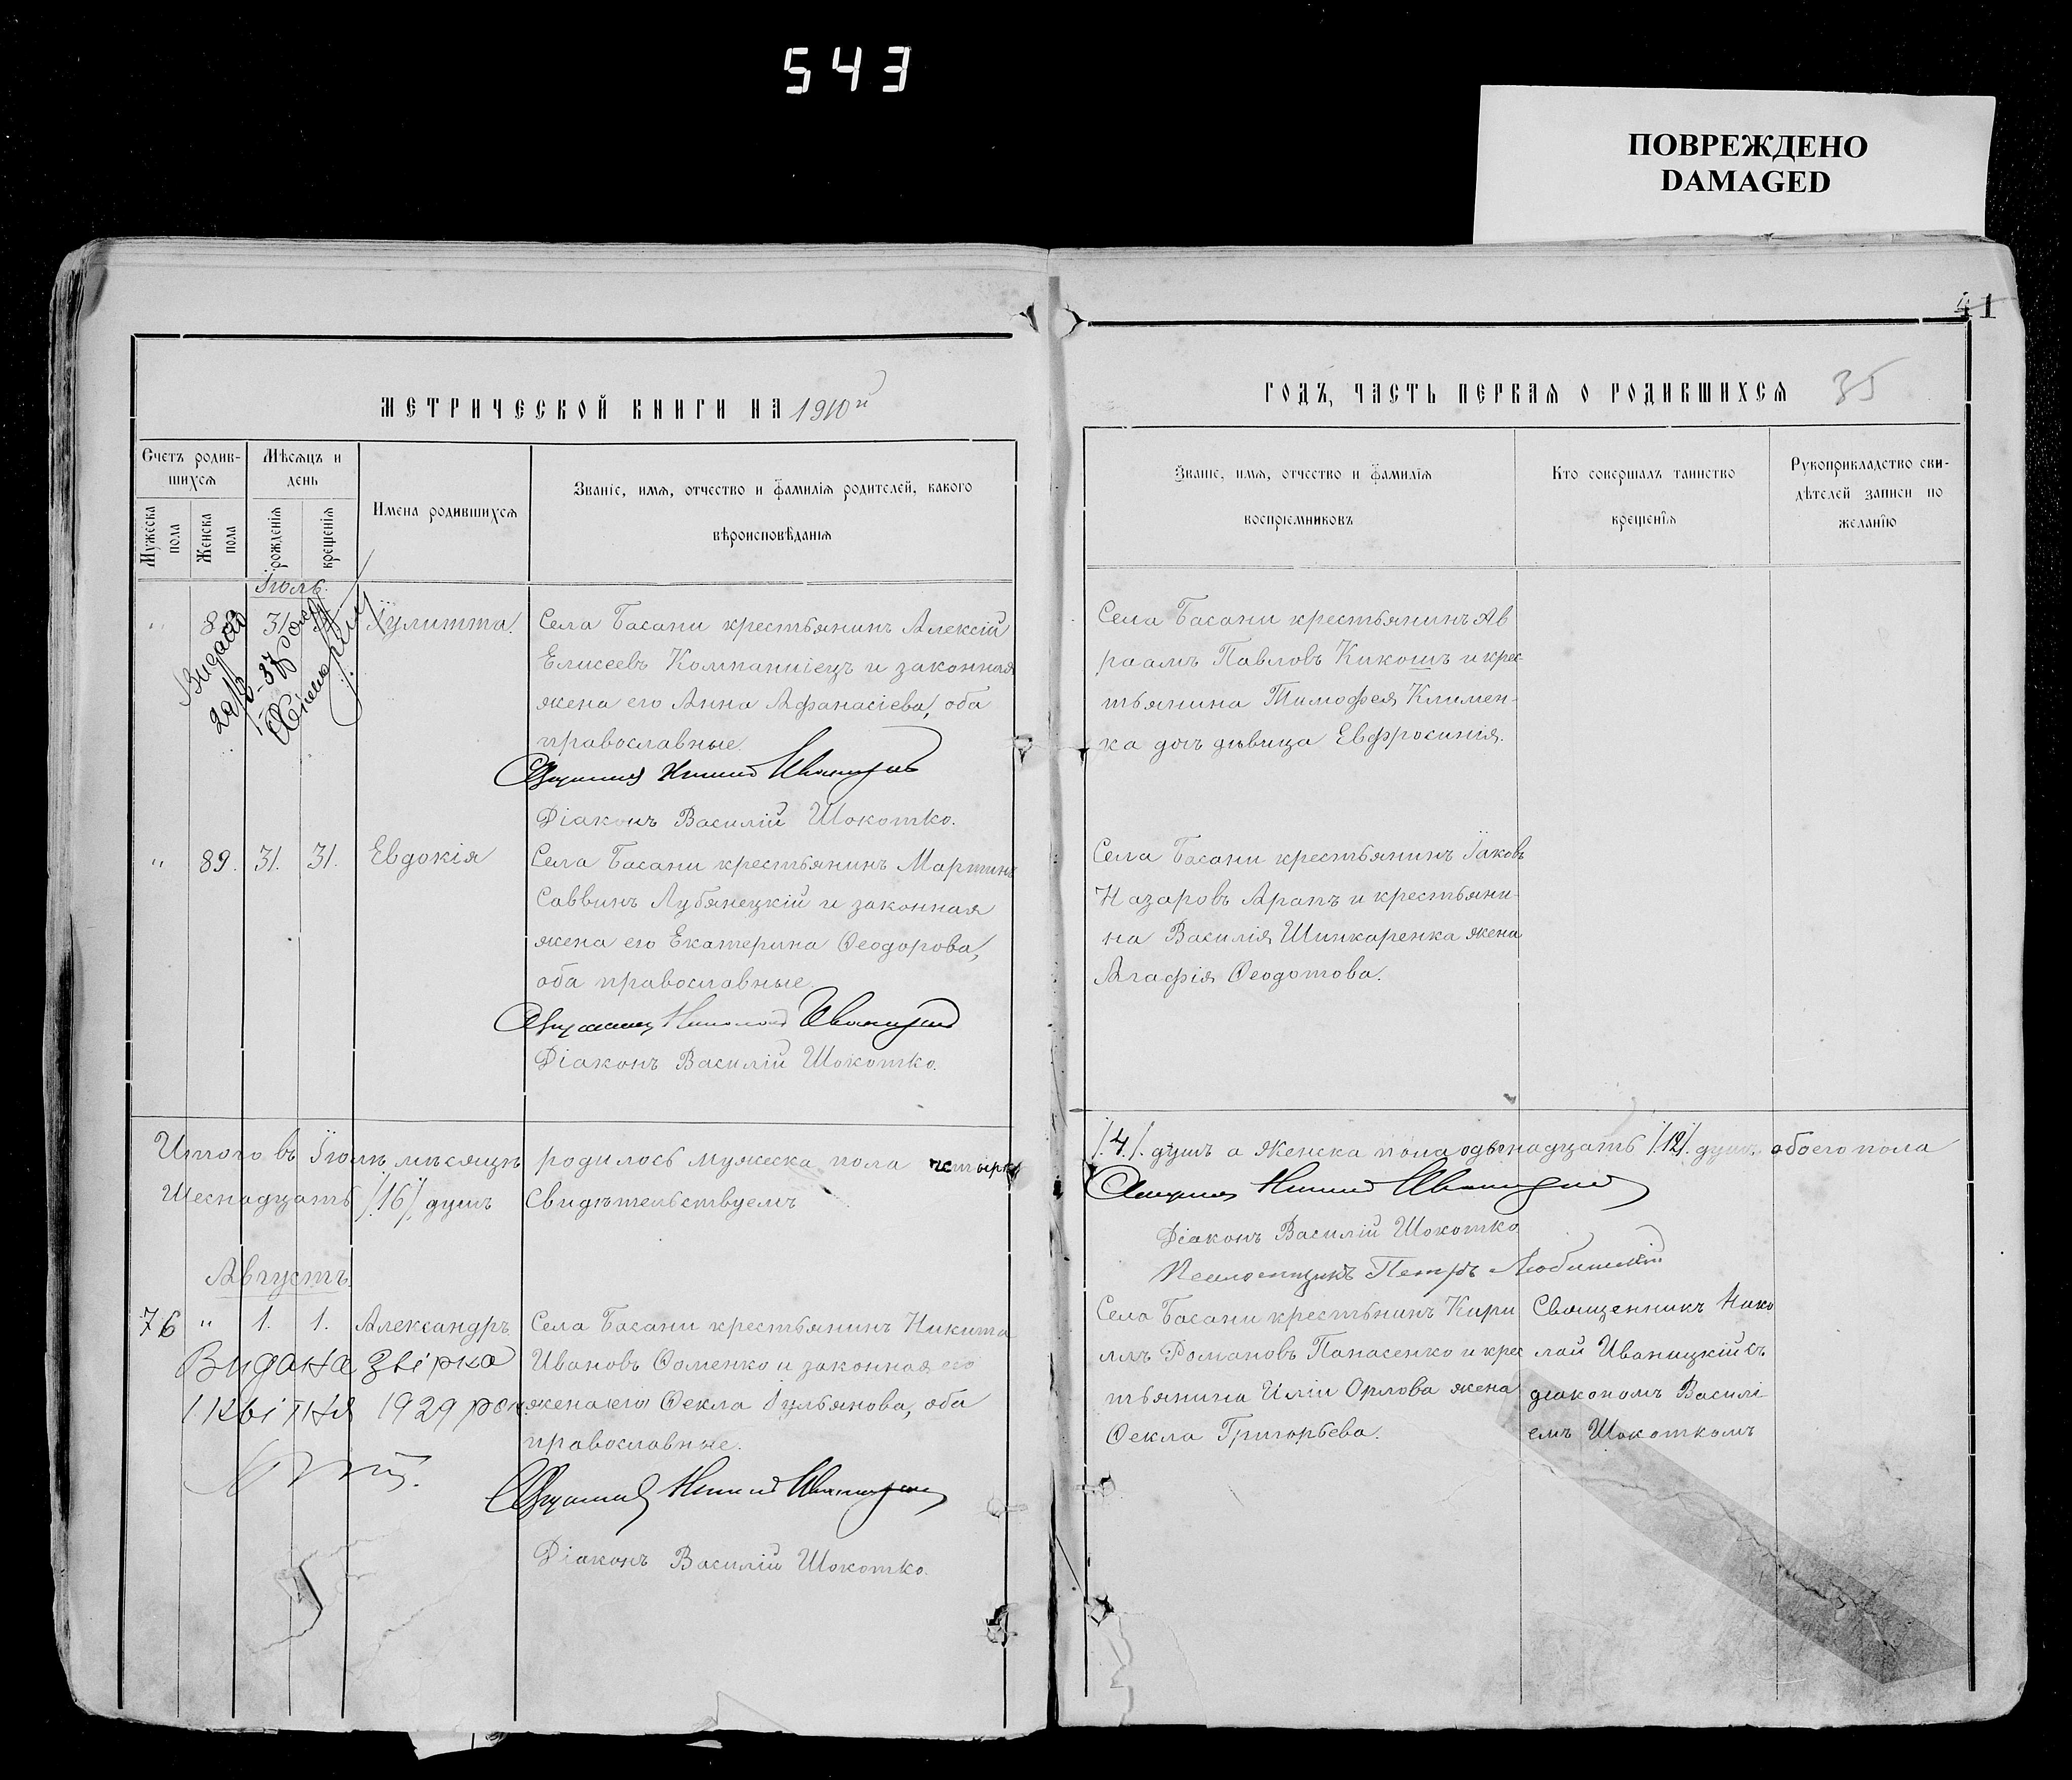 543
ПОВРЕЖДЕНО
DAMAGED
41
МЕТРИЧЕСКОЙ КНИГИ НА 1910й
Счетъ родившихся
Мужеска пола
Женска пола
Мѣсяцъ и день
рожденія
крещенія
Имена родившихся
Званіе, имя, отчество и фамилія родителей, какого
вѣроисповѣданія
Іюль.
" 31 Іулитта.
Села Басани крестьянинъ Алексій
Елисеевъ Компаніецъ и законная
жена его Анна Афанасіева, оба
православные.
Священникъ Николай Иваницкій
Діаконъ Василій Шокотко.
Видана
" 89. 31. 31. Евдокія
Села Басани крестьянинъ Мартинъ
Саввинъ Лубянецкій и законная
жена его Екатерина Ѳеодорова,
оба православные.
Священникъ Николай Иваницкій
Діаконъ Василій Шокотко.
Итого въ Іюлѣ мѣсяцѣ родилось мужеска пола четыре
Шеснадцать /16/ душъ Свидѣтельствуемъ
Августъ.
76 " 1. 1. Александръ
Села Басани крестьянинъ Никита
Ивановъ Ѳоменко и законная его
жена его Ѳекла Іульянова, оба
православные.
Видана Звірка
1 Квітня 1929 рок
Священникъ Николай Иваницкій
Діаконъ Василій Шокотко.
ГОДЪ, ЧАСТЬ ПЕРВАЯ О РОДИВШИХСЯ 35
Званіе, имя, отчество и фамилія
воспріемниковъ
Кто совершалъ таинство
крещенія
Рукоприкладство сви-
дѣтелей записи по
желанію
Села Басани крестьянинъ Ав
раамъ Павловъ Кикошъ и крес-
тьянина Тимофея Климен-
ка дочь дѣвица Евфросинія.
Села Басани крестьянинъ Іаковъ
Назаровъ Арапъ и крестьяни-
на Василія Шинкаренка жена
Агафія Ѳеодотова.
/4/ душъ а Женска пола одьнадцать /12/ душъ, обоего пола
Священникъ Николай Иваницкій
Діаконъ Василій Шокотко
Псаломщикъ Петръ
Села Басани крестьнинъ Кири
ллъ Романовъ Панасенко и крес
тьянина Иліи Орлова жена
Ѳекла Григорьева.
Священникъ Нико
лай Иваницкій съ
діакономъ Василі
емъ Шокоткомъ